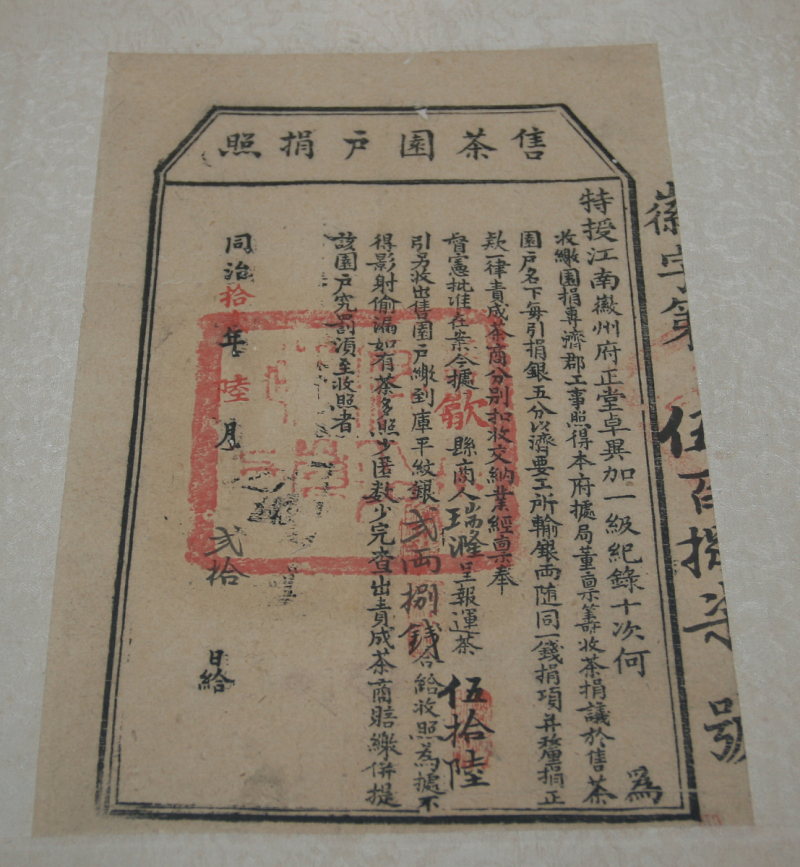 售茶園户捐照
特授江南徽州府正堂卓異加一級紀錄十次何 為
收繳園捐專濟郡工事照得本府據局董稟籌收茶捐議於售茶
園户名下每引捐銀五分以濟要工所輸銀兩隨同一錢捐項并釐捐正
欵一律責成茶商分別扣收交納業經稟奉
督憲批准在案今據歙縣商人瑞滙呈報運茶伍拾陸
引另收出售園户繳到庫平紋銀弍兩捌錢合給收照為據不
得影射偷漏如有茶多照少匿數少完查出責成茶商賠繳併提
該園户究罰須至收照者
同治拾年陸月弍拾日給
徽字第伍百捌柒號